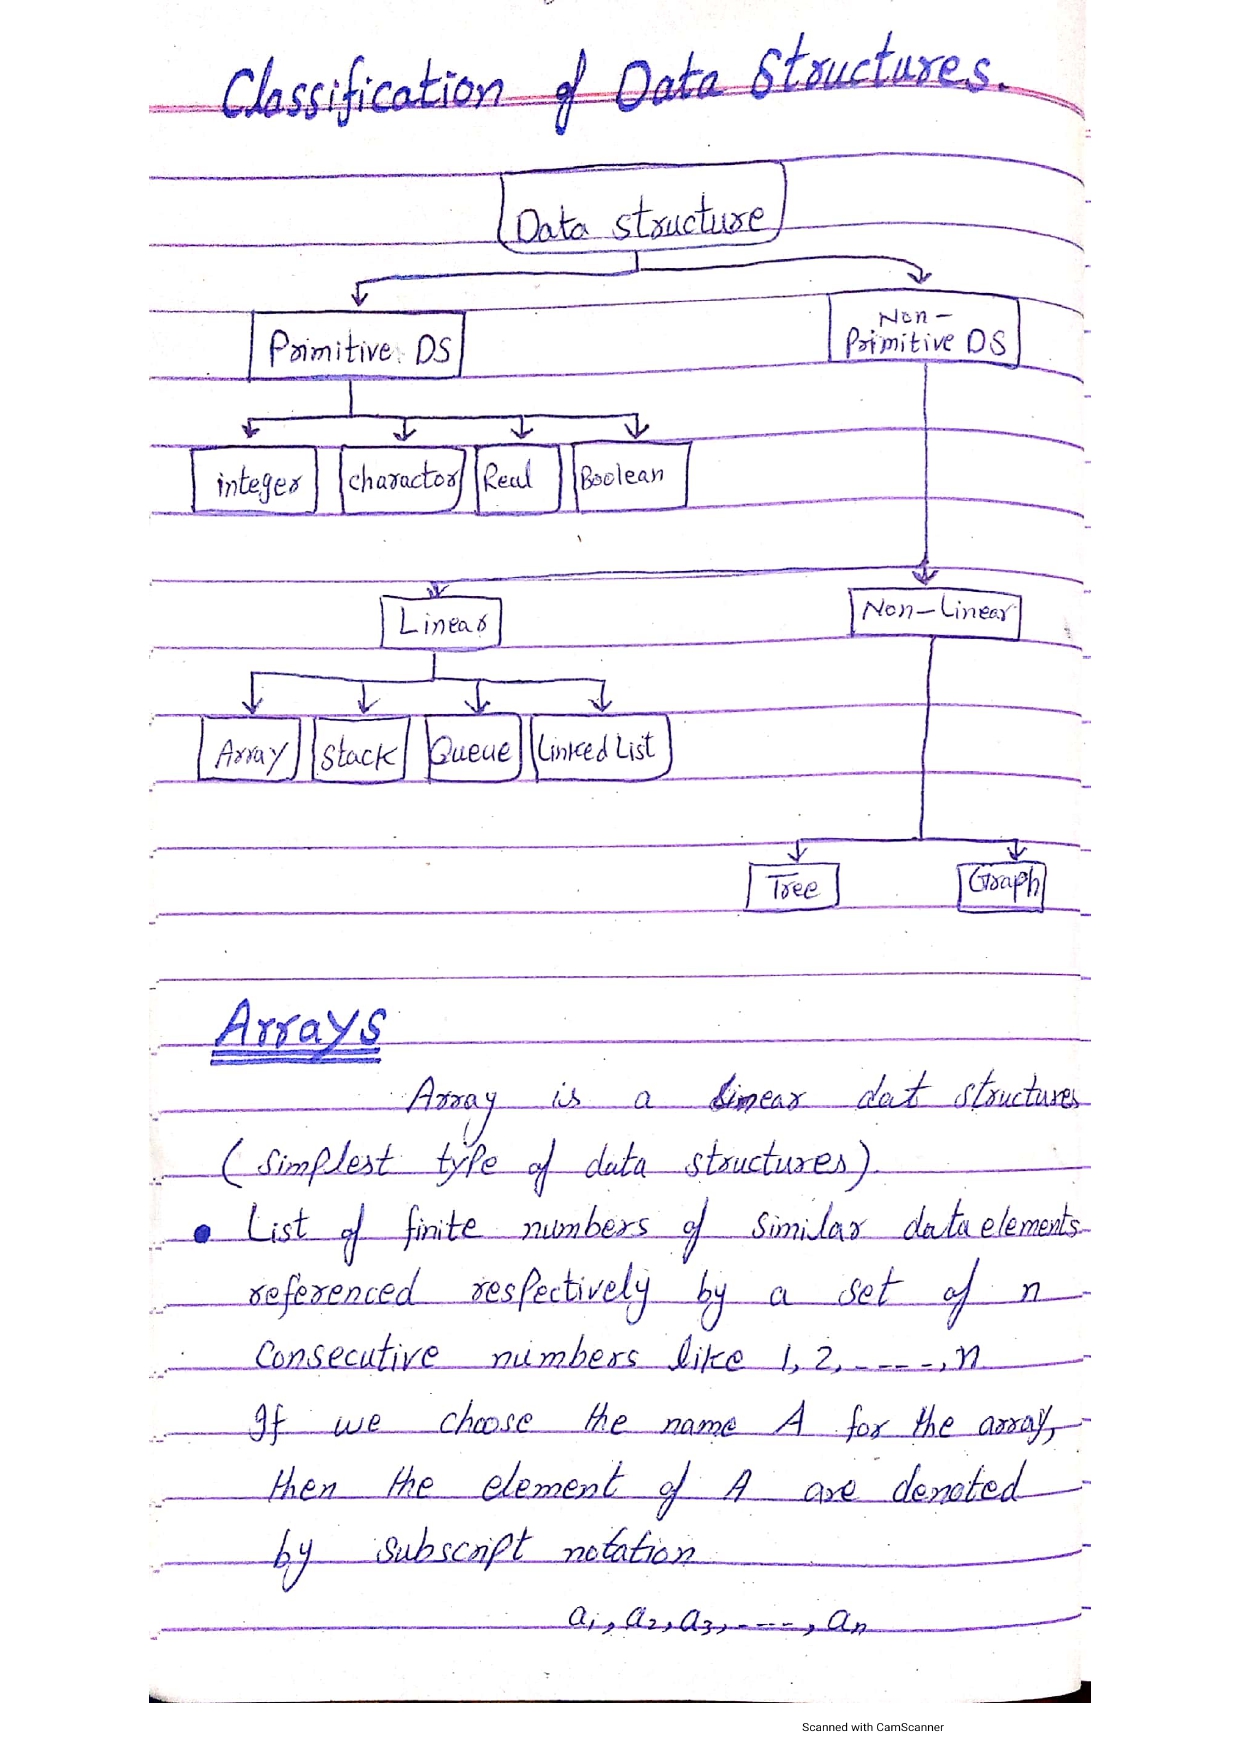 Classification of Data Structures.
Data structure
Primitive DS
Non-
Primitive DS
integer charactor Real Boolean
Linear Non-Linear
Array Stack Queue Linked List
Tree Graph
Arrays
Array is a Linear dat structures
(simplest type of data structures)
• List of finite numbers of similar data elements
referenced respectively by a set of n
Consecutive numbers like 1, 2, ----, n
If we choose the name A for the array,
then the element of A are denoted
by subscript notation
a₁, a₂, a₃, ----, aₙ
Scanned with CamScanner